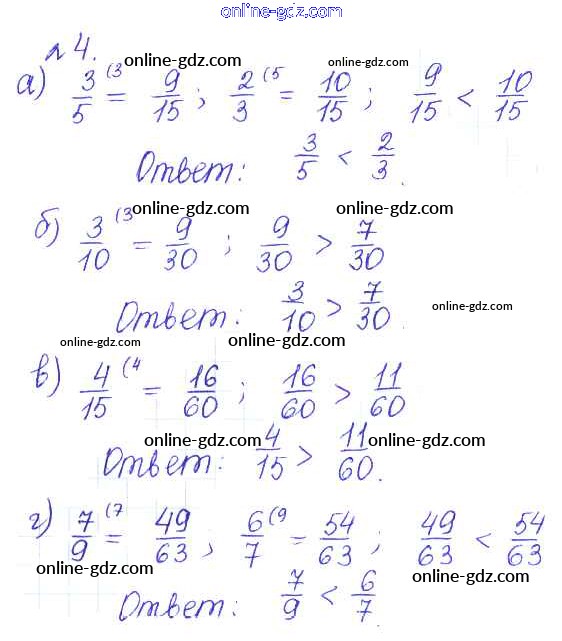 online-gdz.com
№ 4.
online-gdz.com online-gdz.com
а) 3/5 (3 = 9/15 ; 2/3 (5 = 10/15 ; 9/15 < 10/15
Ответ: 3/5 < 2/3.
online-gdz.com online-gdz.com
б) 3/10 (3 = 9/30 ; 9/30 > 7/30
online-gdz.com
Ответ: 3/10 > 7/30.
online-gdz.com
в) 4/15 (4 = 16/60 ; 16/60 > 11/60
online-gdz.com online-gdz.com
Ответ: 4/15 > 11/60.
г) 7/9 (7 = 49/63 ; 6/7 (9 = 54/63 ; 49/63 < 54/63
online-gdz.com online-gdz.com
Ответ: 7/9 < 6/7.